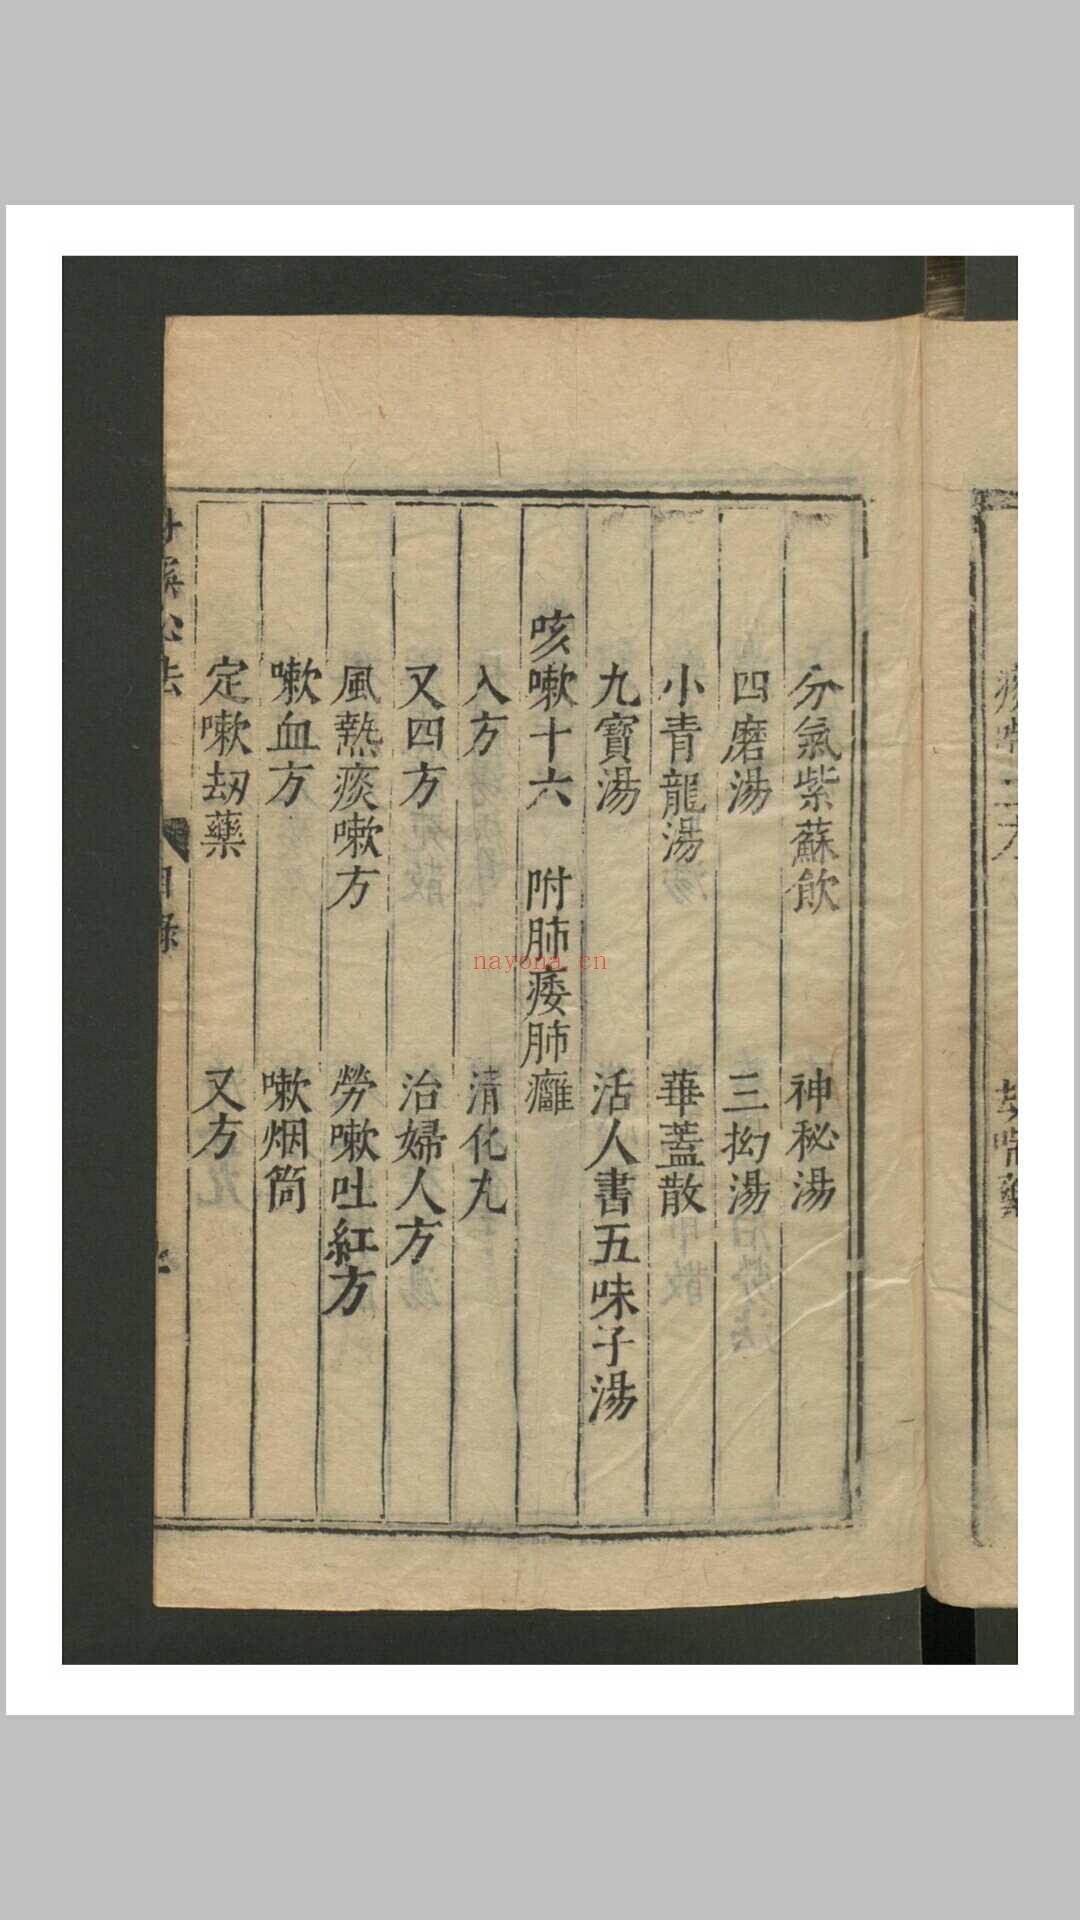 分氣紫蘇飲 神秘湯
四磨湯 三拗湯
小青龍湯 華蓋散
九寶湯 活人書五味子湯
咳嗽十六 附肺痿肺癰
入方 清化丸
又四方 治婦人方
風熱痰嗽方 勞嗽吐紅方
嗽血方 嗽烟筒
定嗽刼藥 又方
心法
目錄
nayona.cn